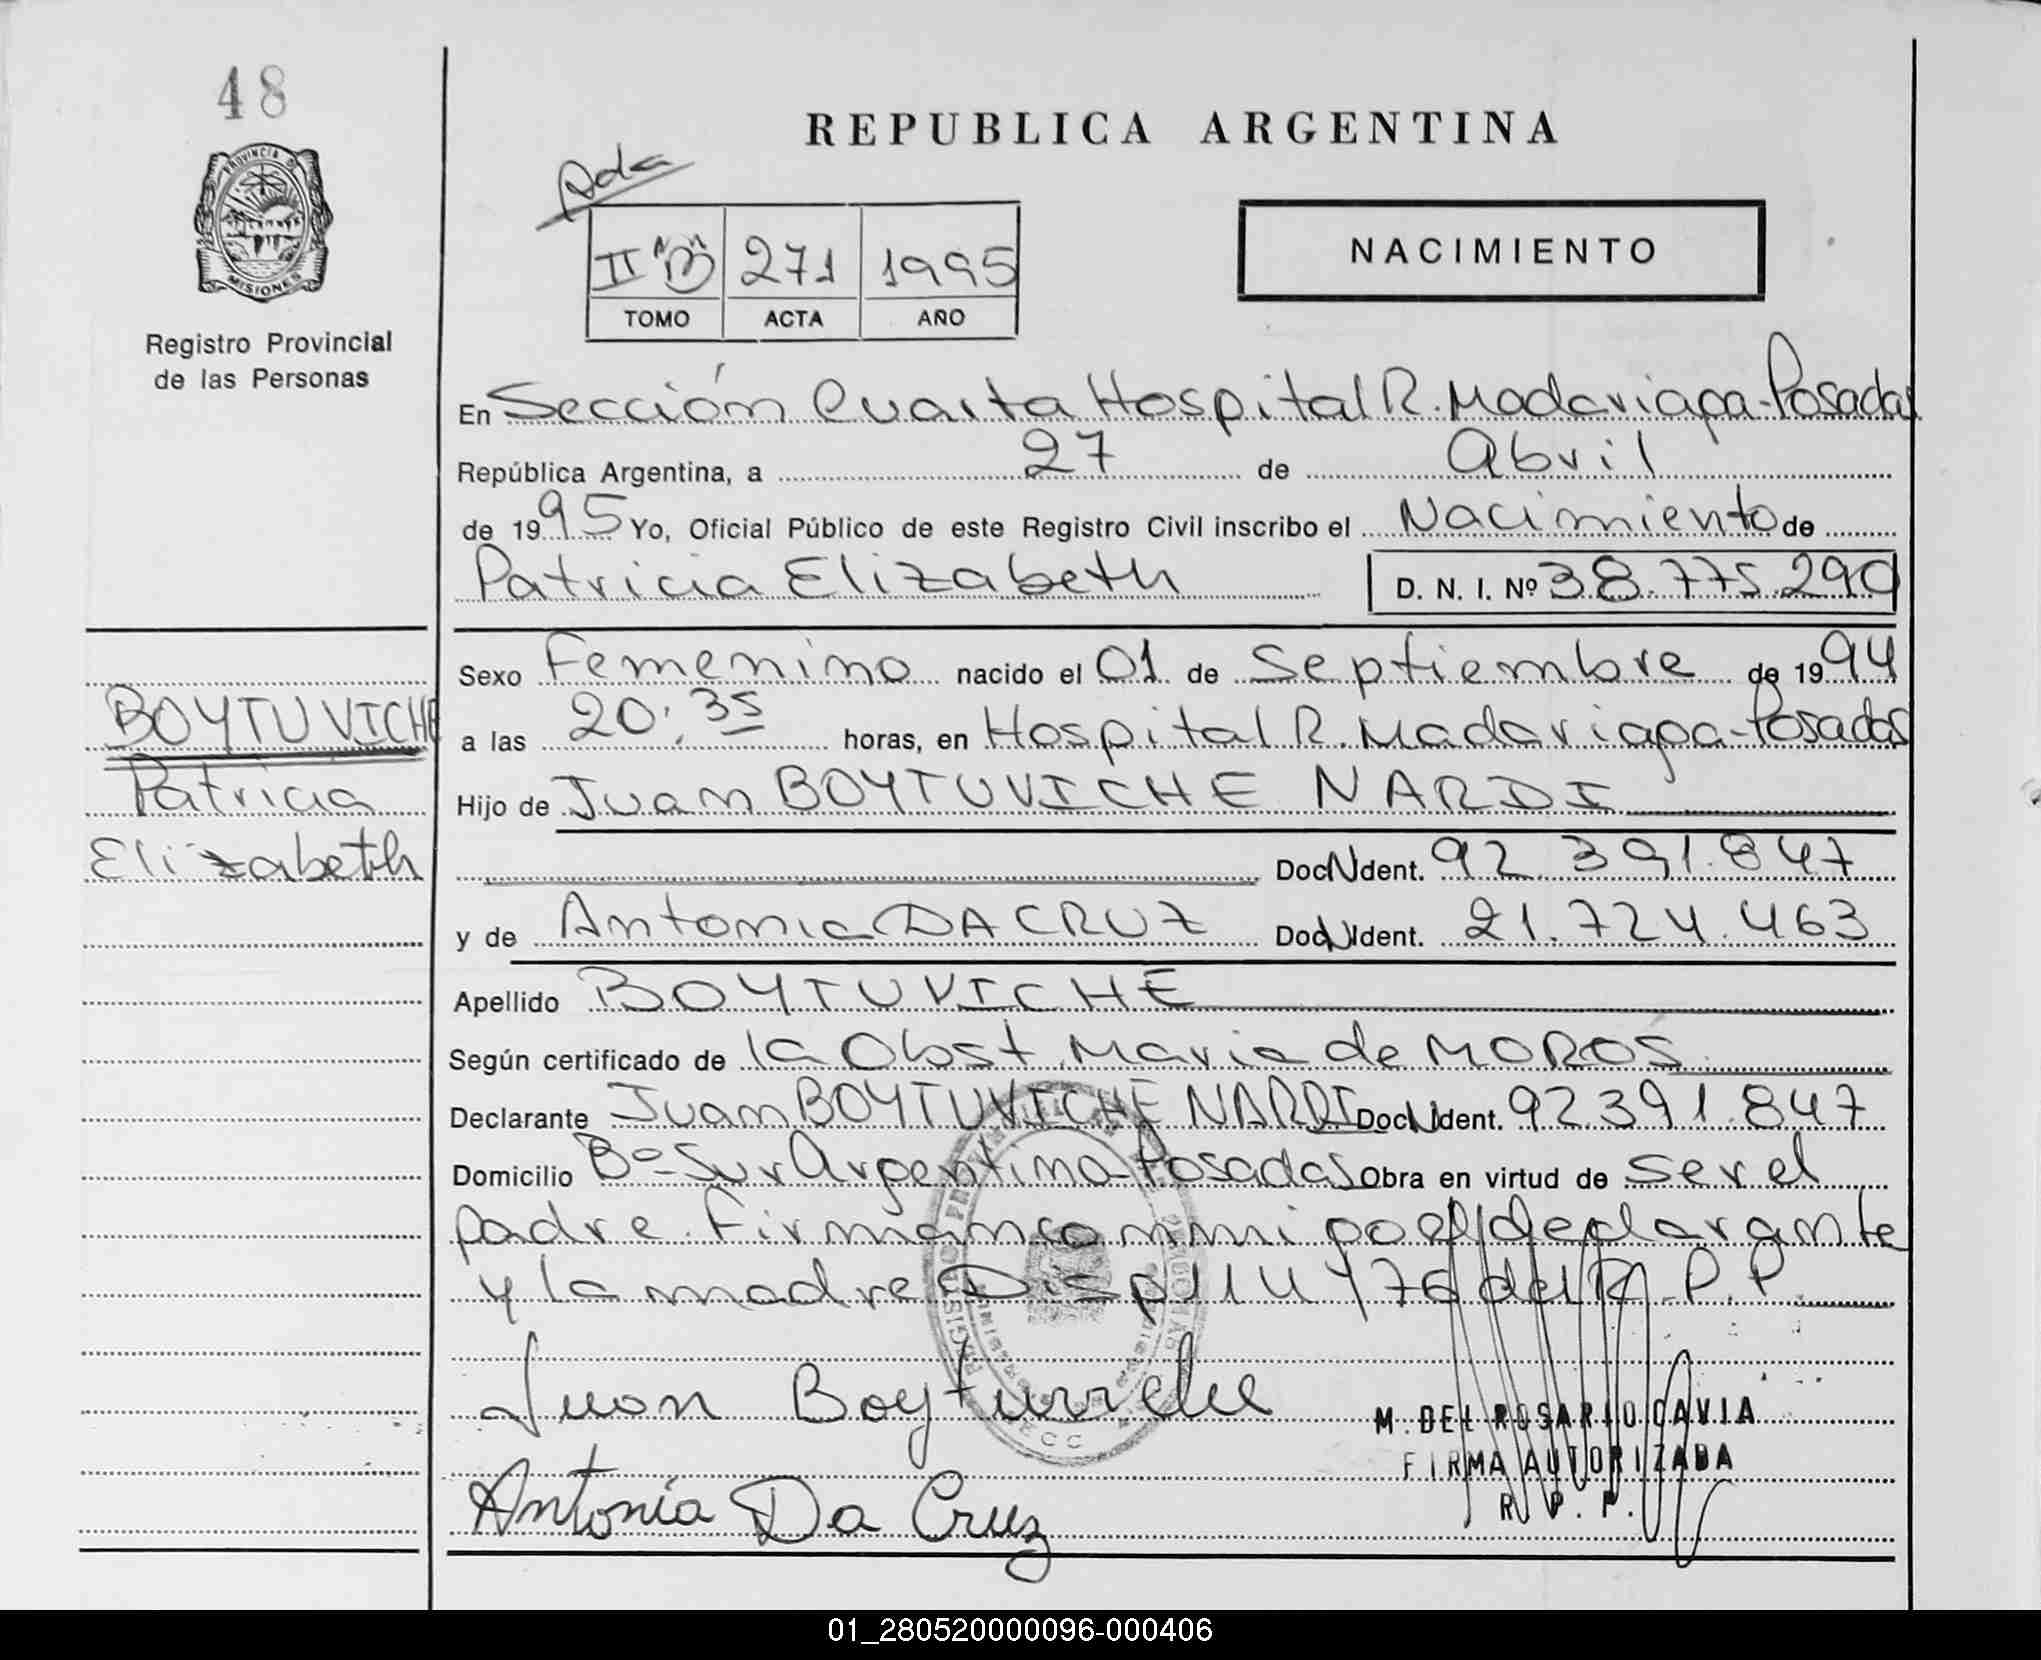 48
REPUBLICA ARGENTINA
PROVINCIA D
MISIONES
Registro Provincial
de las Personas
Ada
II "B" 271 1995
TOMO ACTA AÑO
NACIMIENTO
En Sección Cuarta Hospital R. Madariaga-Posadas
República Argentina, a 27 de Abril
de 1995 Yo, Oficial Público de este Registro Civil inscribo el Nacimiento de
Patricia Elizabeth D. N. I. Nº 38.775.290
Sexo Femenino nacido el 01 de Septiembre de 1994
a las 20:35 horas, en Hospital R. Madariaga-Posadas
Hijo de Juan BOYTUVICHE NARDI
Doc N Ident. 92.391.847
y de Antonia DA CRUZ Doc N Ident. 21.724.463
Apellido BOYTUVICHE
Según certificado de la Obst. Maria de MOROS
Declarante Juan BOYTUVICHE NARDI Doc N Ident. 92.391.847
Domicilio Bº Sur Argentino-Posadas Obra en virtud de ser el
padre. Firman conmigo el declarante
y la madre Disp 114/76 del R.P.P.
BOYTUVICHE
Patricia
Elizabeth
Juan Boytuviche
Antonia Da Cruz
M. DEL ROSARIO CAVIA
FIRMA AUTORIZADA
R. P. P.
01_280520000096-000406